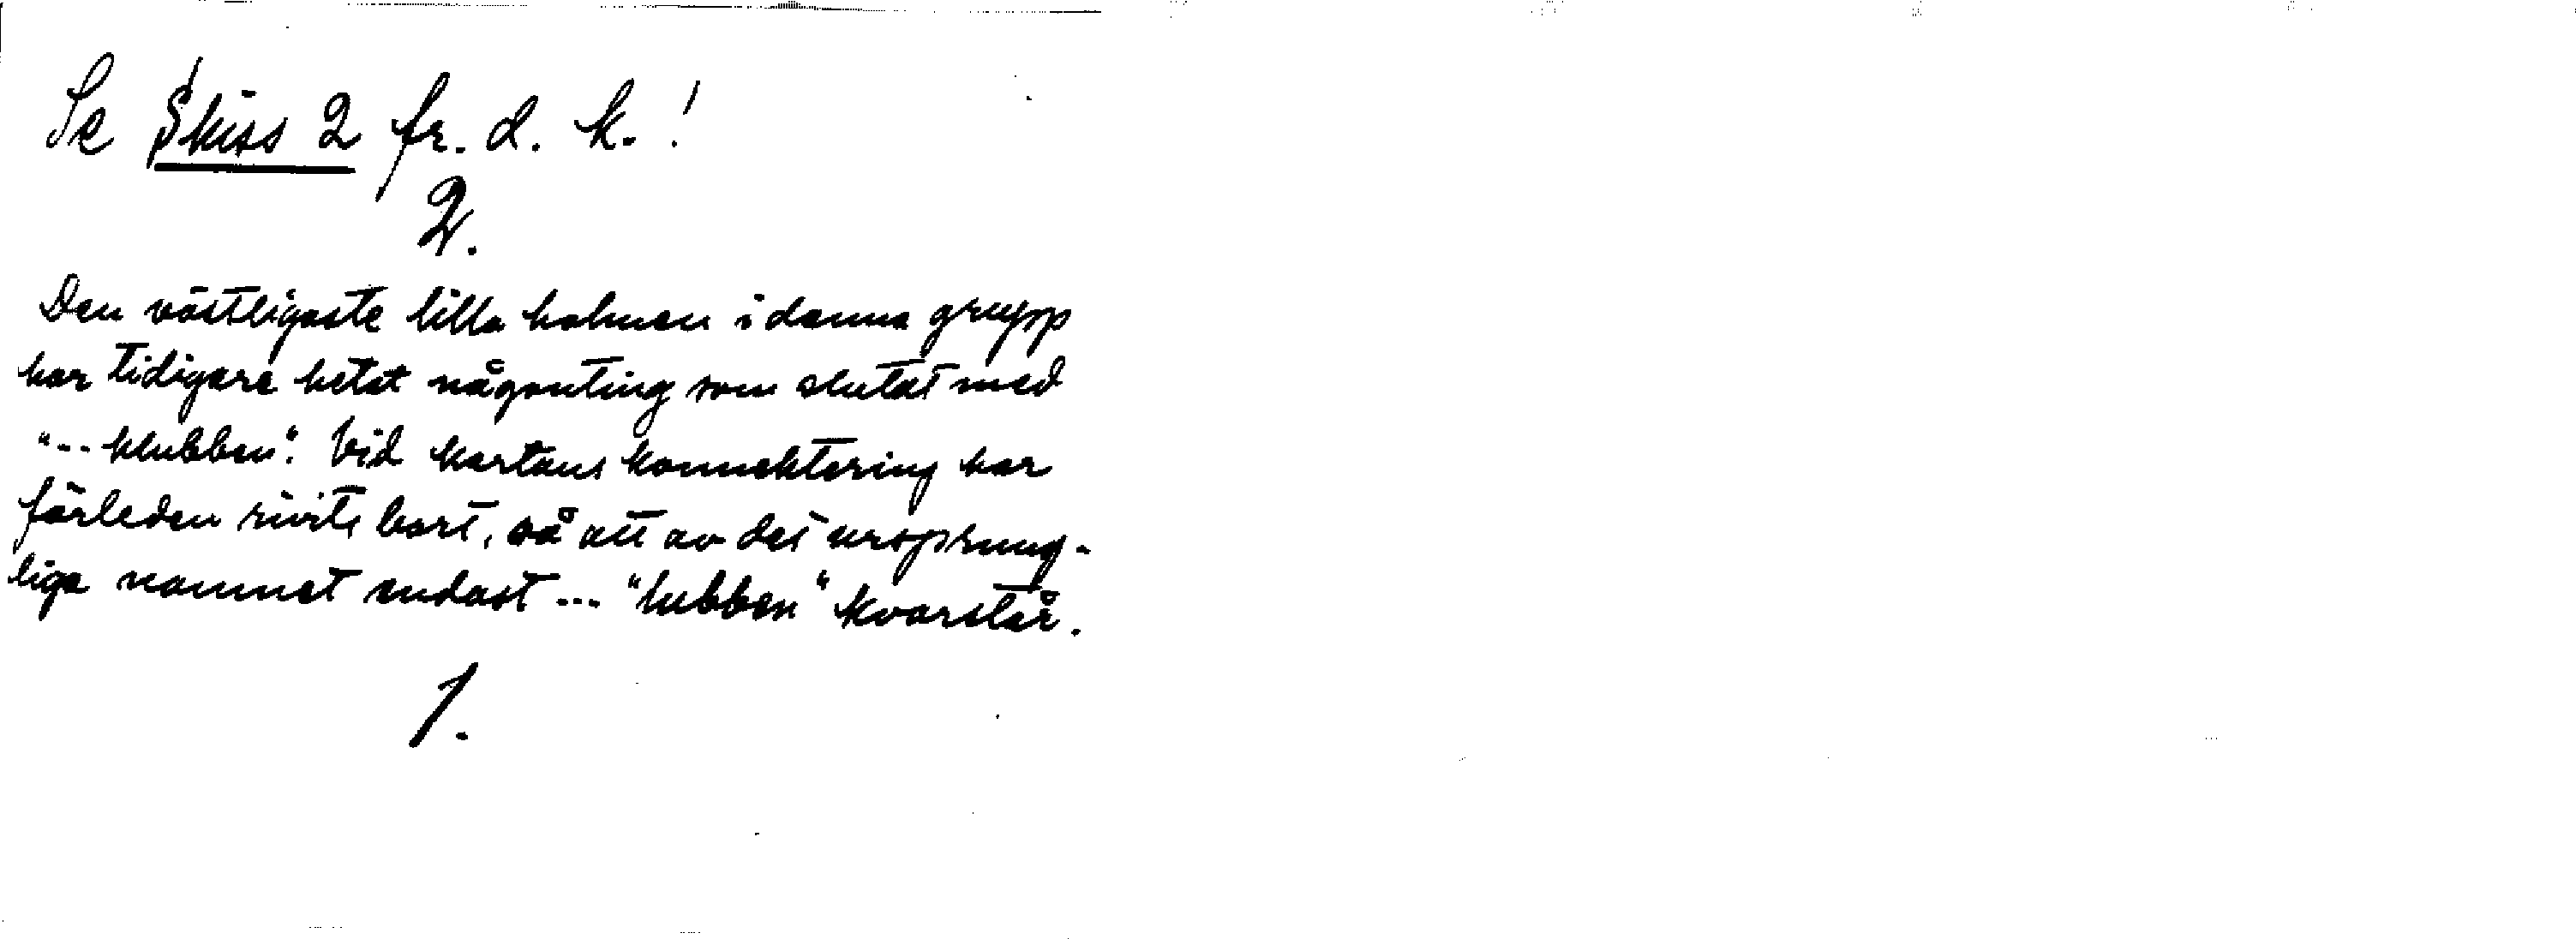 Se Skiss 2 fr. d. k.!
2.
Den västligaste lilla holmen i denna grupp
har tidigare hetat någonting som slutat med
"... klubben". Vid kartans konnektering har
förleden rivits bort, så att av det ursprung-
liga namnet endast ... "lubben" kvarstår.
1.